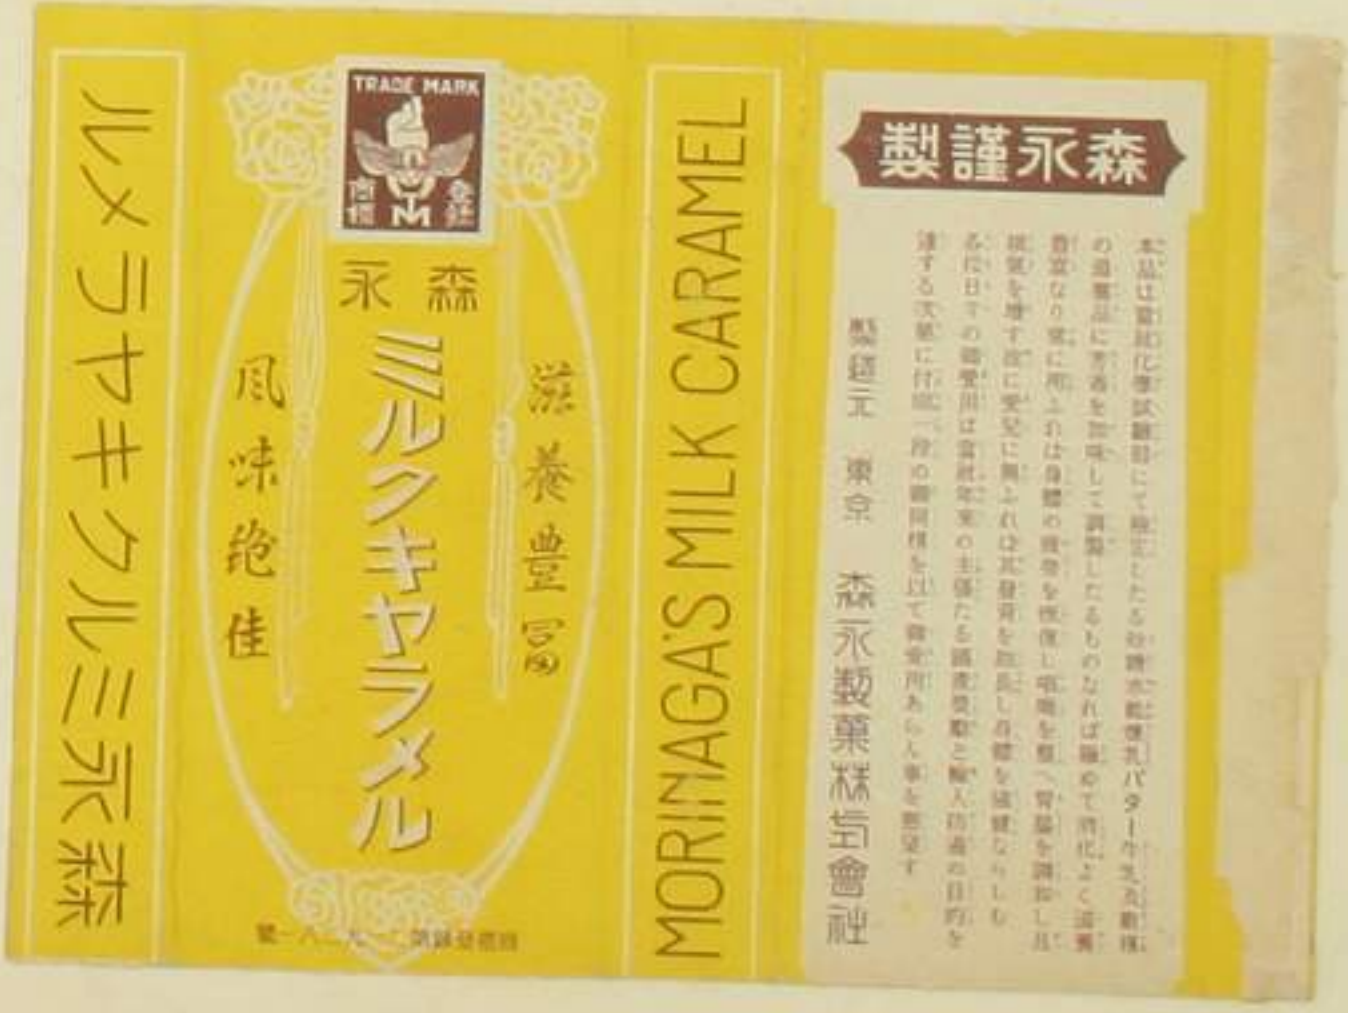 森永ミルクキヤラメル
TRADE MARK
登録
商標
TM
森永
滋養豊富
ミルクキヤラメル
風味絶佳
MORINAGA'S MILK CARAMEL
森永謹製
本品は當社化學試驗部にて たる砂糖水飴煉乳バター牛乳及
の滋養品に芳香を加味して調製したるものなれば極めて消化よく滋養
豊富なり常に用ふれば身體の疲勞を恢復し咽喉を整へ胃腸を調和し且
を増す故に愛兒に與ふれば其發育を助長し身體を ならしむ
日々の御愛用は當社年来の主張たる國産奬勵と輸入防遏の目的を
達する次第に付 一段の御同情を以て御愛用あらん事を懇望す
製造元 東京 森永製菓株式會社